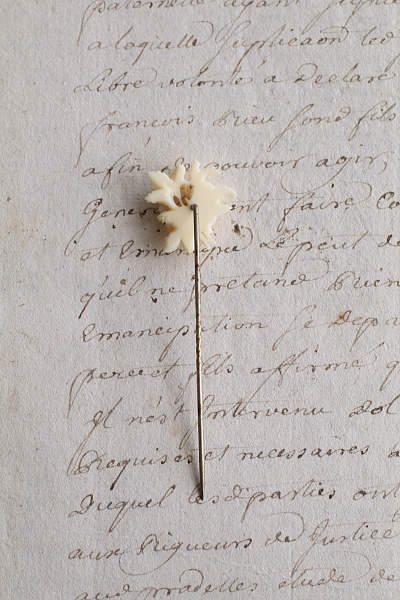 paternelle ayant
a laquelle Suplicaon led
Libre volonté a Declaré
francois Brieu Sond fils
afin de pouvoir agir
Gener nt faire Co
et Emancipé Le peut de
qu'il ne pretand Brien
Emancipation Se depa
percet fils affirmé q
Il n'est Intervenu dol
Requises et necessaires a
Duquel les d parties ont
aux Rigueurs de Justice
aud etude de